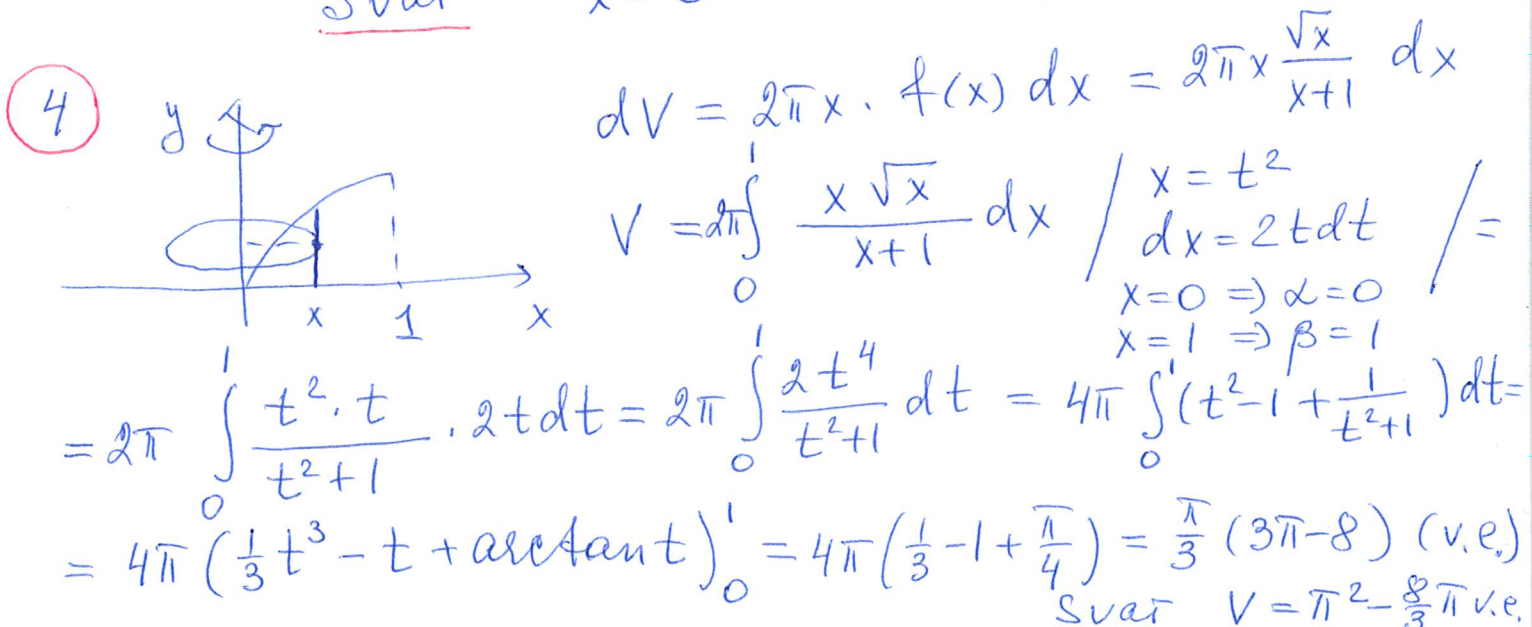 Svar
4 y dV = 2πx · f(x) dx = 2πx √x/(x+1) dx
V = 2π ∫₀¹ x√x/(x+1) dx / x = t²
dx = 2tdt / =
x=0 ⇒ α=0
x x=1 ⇒ β=1
x 1
= 2π ∫₀¹ t²·t/(t²+1) · 2tdt = 2π ∫₀¹ 2t⁴/(t²+1) dt = 4π ∫₀¹ (t²-1+1/(t²+1)) dt =
= 4π (1/3 t³ - t + arctan t)₀¹ = 4π (1/3 - 1 + π/4) = π/3 (3π-8) (v.e.)
Svar V = π² - 8/3 π v.e.